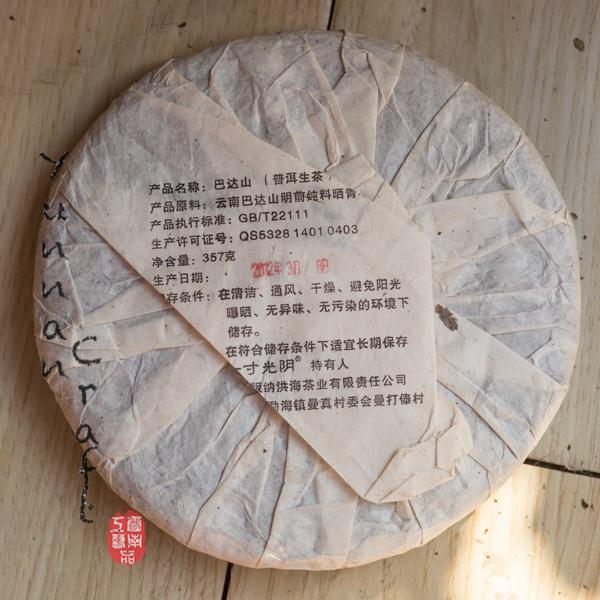 产品名称：巴达山 （普洱生茶）
产品原料：云南巴达山明前纯料晒青
产品执行标准：GB/T22111
生产许可证号：QS5328 1401 0403
净含量：357克
生产日期： 2012年3月 日
存条件：在清洁、通风、干燥、避免阳光
曝晒、无异味、无污染的环境下
储存。
在符合储存条件下适宜长期保存
一寸光阴® 持有人
版纳洪海茶业有限责任公司
勐海镇曼真村委会曼打傣村
Yunnan
Craft